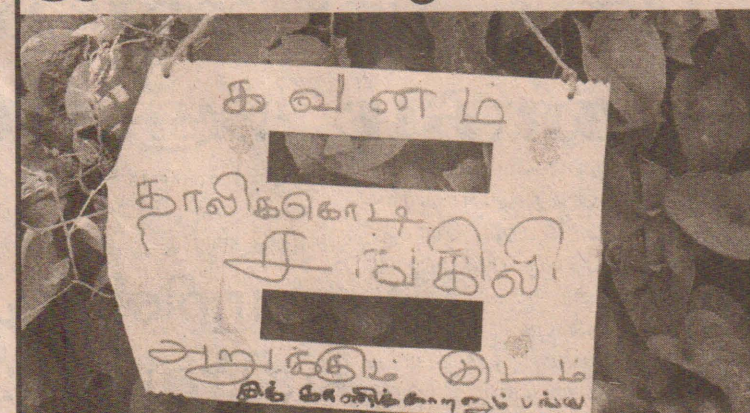 கவனம்
தாலிக்கொடி
சங்கிலி
அறுக்கும் இடம்
இக்